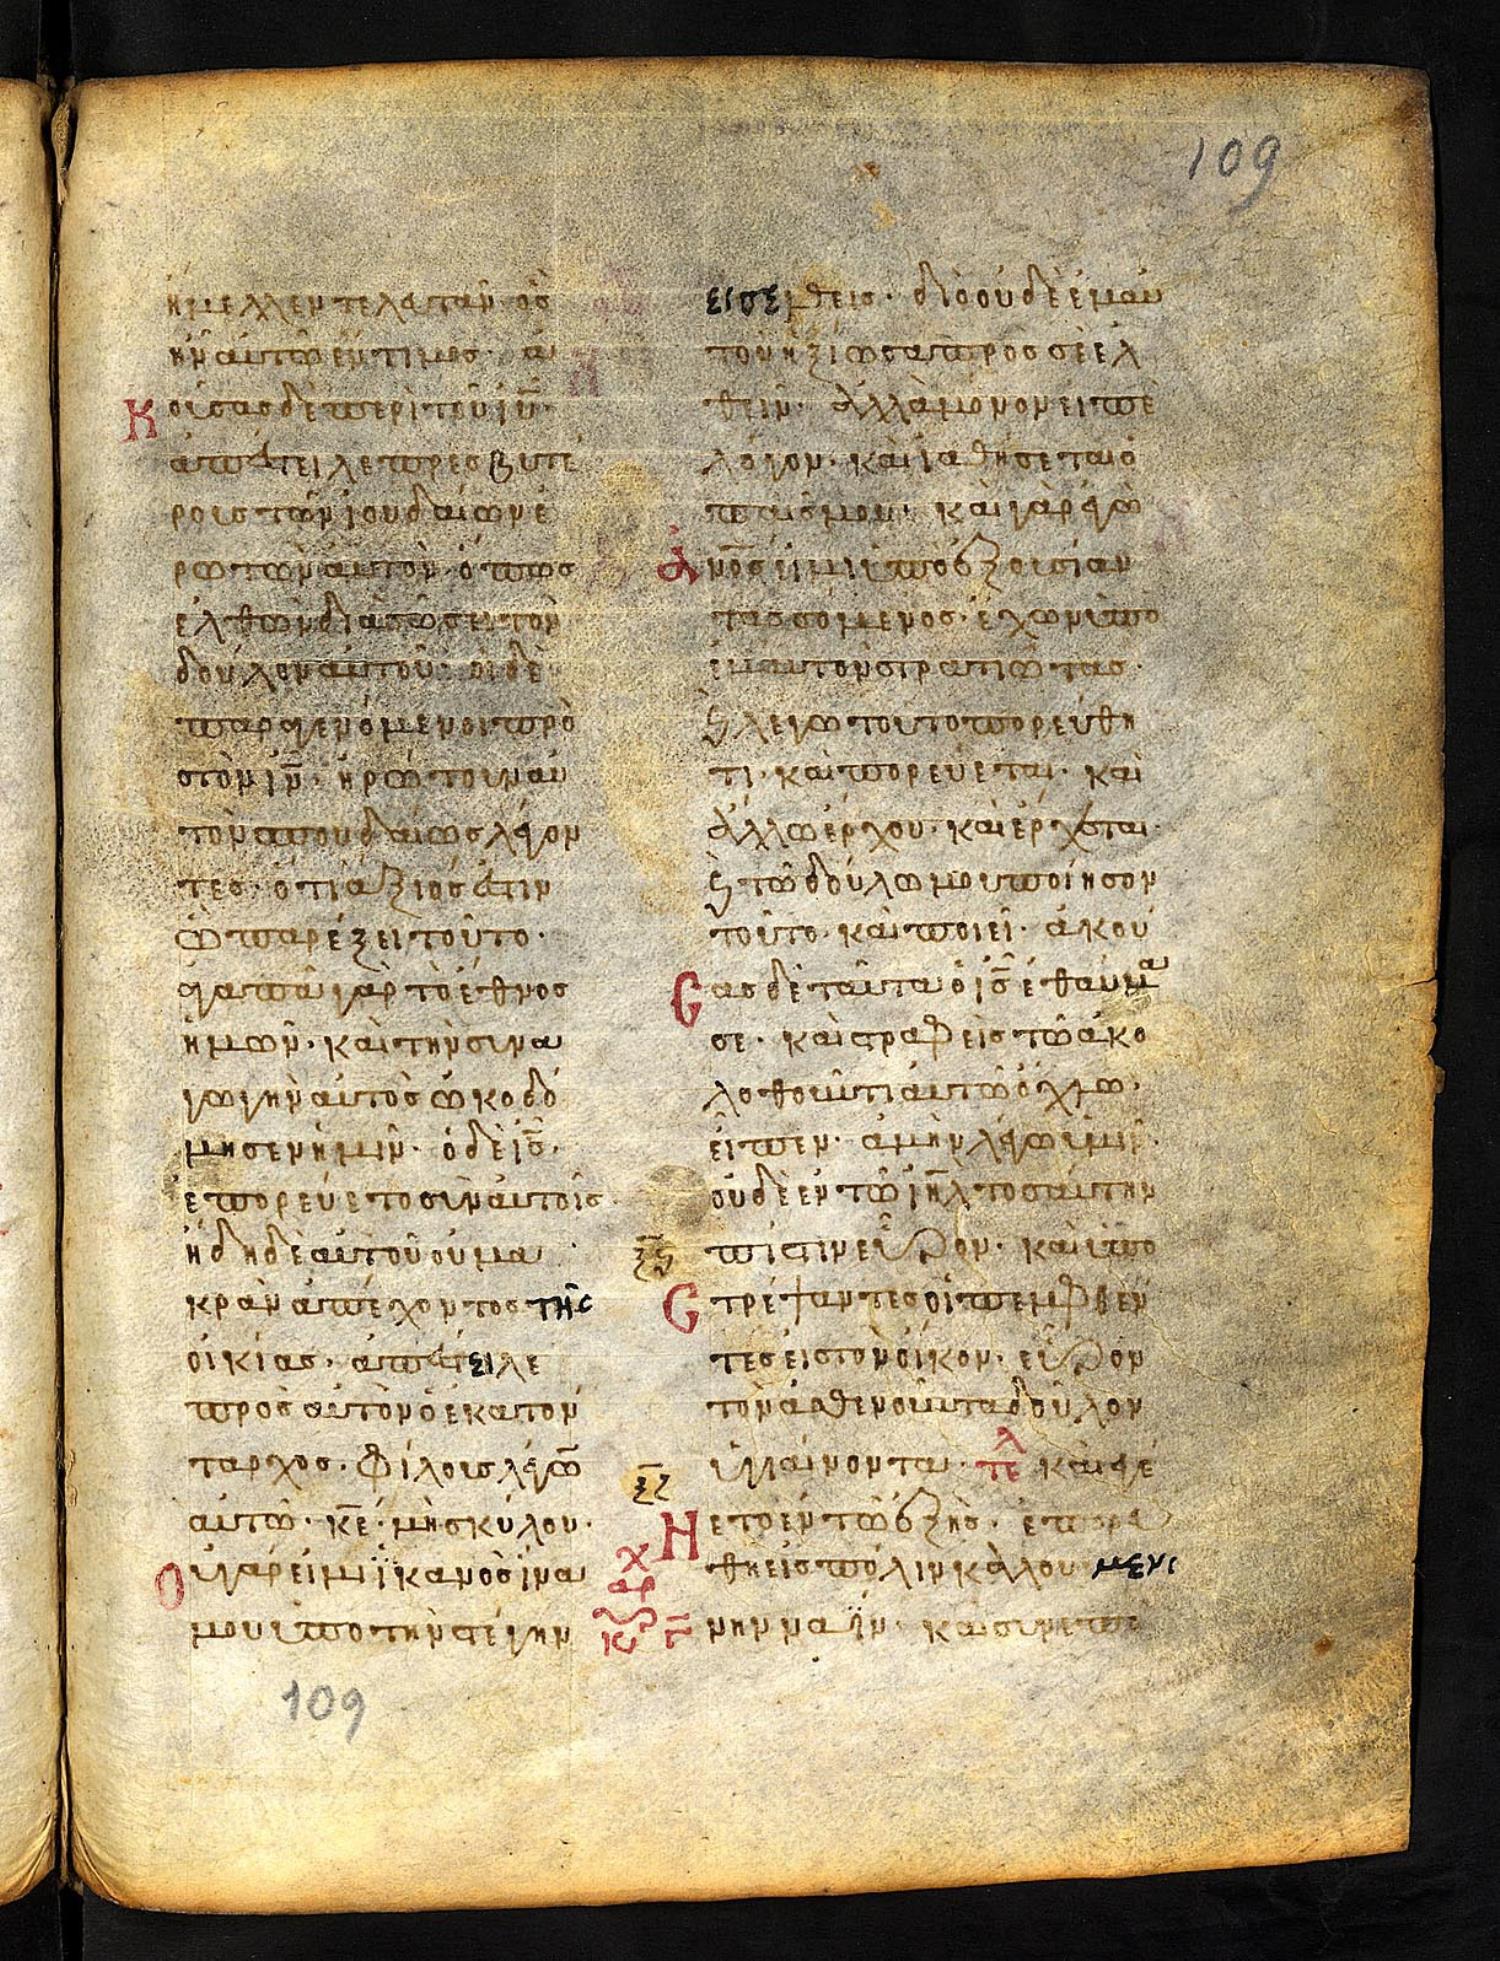 109
ἤμελλεν τελευτᾶν· ὃς
ἦν αὐτῶ ἔντιμος· ἀ
Κούσας δὲ περὶ τοῦ ἰ̅υ̅·
ἀπέστειλε πρεσβυτέ
ρους τῶν ἰουδαίων ἐ
ρωτῶν αὐτὸν ὅπως
ἐλθὼν διασώσει τὸν
δοῦλον αὐτοῦ· οἱ δὲ
παραγενόμενοι πρὸ
ς τὸν ἰ̅ν̅· ἠρώτουν αὐ
τὸν σπουδαίως λέγον
τες· ὅτι ἄξιός ἐστιν
ὧ παρέξει τοῦτο·
ἀγαπᾶ γὰρ τὸ ἔθνος
ἡμῶν· καὶ τὴν συνα
γωγὴν αὐτὸς ὠκοδό
μησεν ἡμῖν· ὁ δὲ ἰ̅ς̅·
ἐπορεύετο σὺν αὐτοῖς
ἤδη δὲ αὐτοῦ οὐ μα
κρὰν ἀπέχοντος τῆς
οἰκίας· ἀπέστειλε
πρὸς αὐτὸν ὁ ἑκατόν
ταρχος· φίλους λέγω̅
αὐτῶ· κ̅ε̅· μὴ σκύλου·
Οὐ γάρ εἰμι ἱκανὸς ἵνα
μου ὑπο τὴν στέγην
εἰσέλθεις· διὸ οὐδὲ ἐμαυ
τὸν ἠξίωσα πρὸς σὲ ἐλ
θεῖν· ἀλλὰ μόνον εἰπὲ
λόγον· καὶ ἰαθήσεται ὁ
παῖς μου· καὶ γὰρ ἐγὼ
ἄν̅ο̅ς εἰμι ὑπὸ ἐξουσίαν
τασσόμενος· ἔχων ὑπὸ
ἐμαυτὸν στρατιώτας·
ϗ λέγω τούτο πορεύθη
τι· καὶ πορεύεται· καὶ
ἄλλω ἔρχου· καὶ ἔρχεται·
ϗ τῶ δούλω μου ποίησον
τοῦτο· καὶ ποιεῖ· ἀκού
Σας δὲ ταῦτα ὁ ἰ̅ς̅ ἐθαύμα
σε· καὶ στραφεὶς τῶ ἀκο
λοθοῦντι αὐτῶ ὄχλω·
εἶπεν· ἀμὴν λέγω ὑμῖν·
οὐδὲ ἐν τῶ ἰ̅η̅λ̅ τοσαύτην
ξ̅ϛ̅ πίστιν εὗρον· καὶ ὑπο
Στρέψαντες οἱ πεμφθέν
τες εἰς τὸν οἶκον· εὗρον
τὸν ἀσθενοῦντα δοῦλον
ὑγιαίνοντα· τελ καὶ ἐγέ
ξ̅ζ̅ Νετο ἐν τῶ ἑξῆς· ἐπορεύ
θη εἰς πόλιν καλουμένι
μην ναΐν· καὶ συνεπο
109